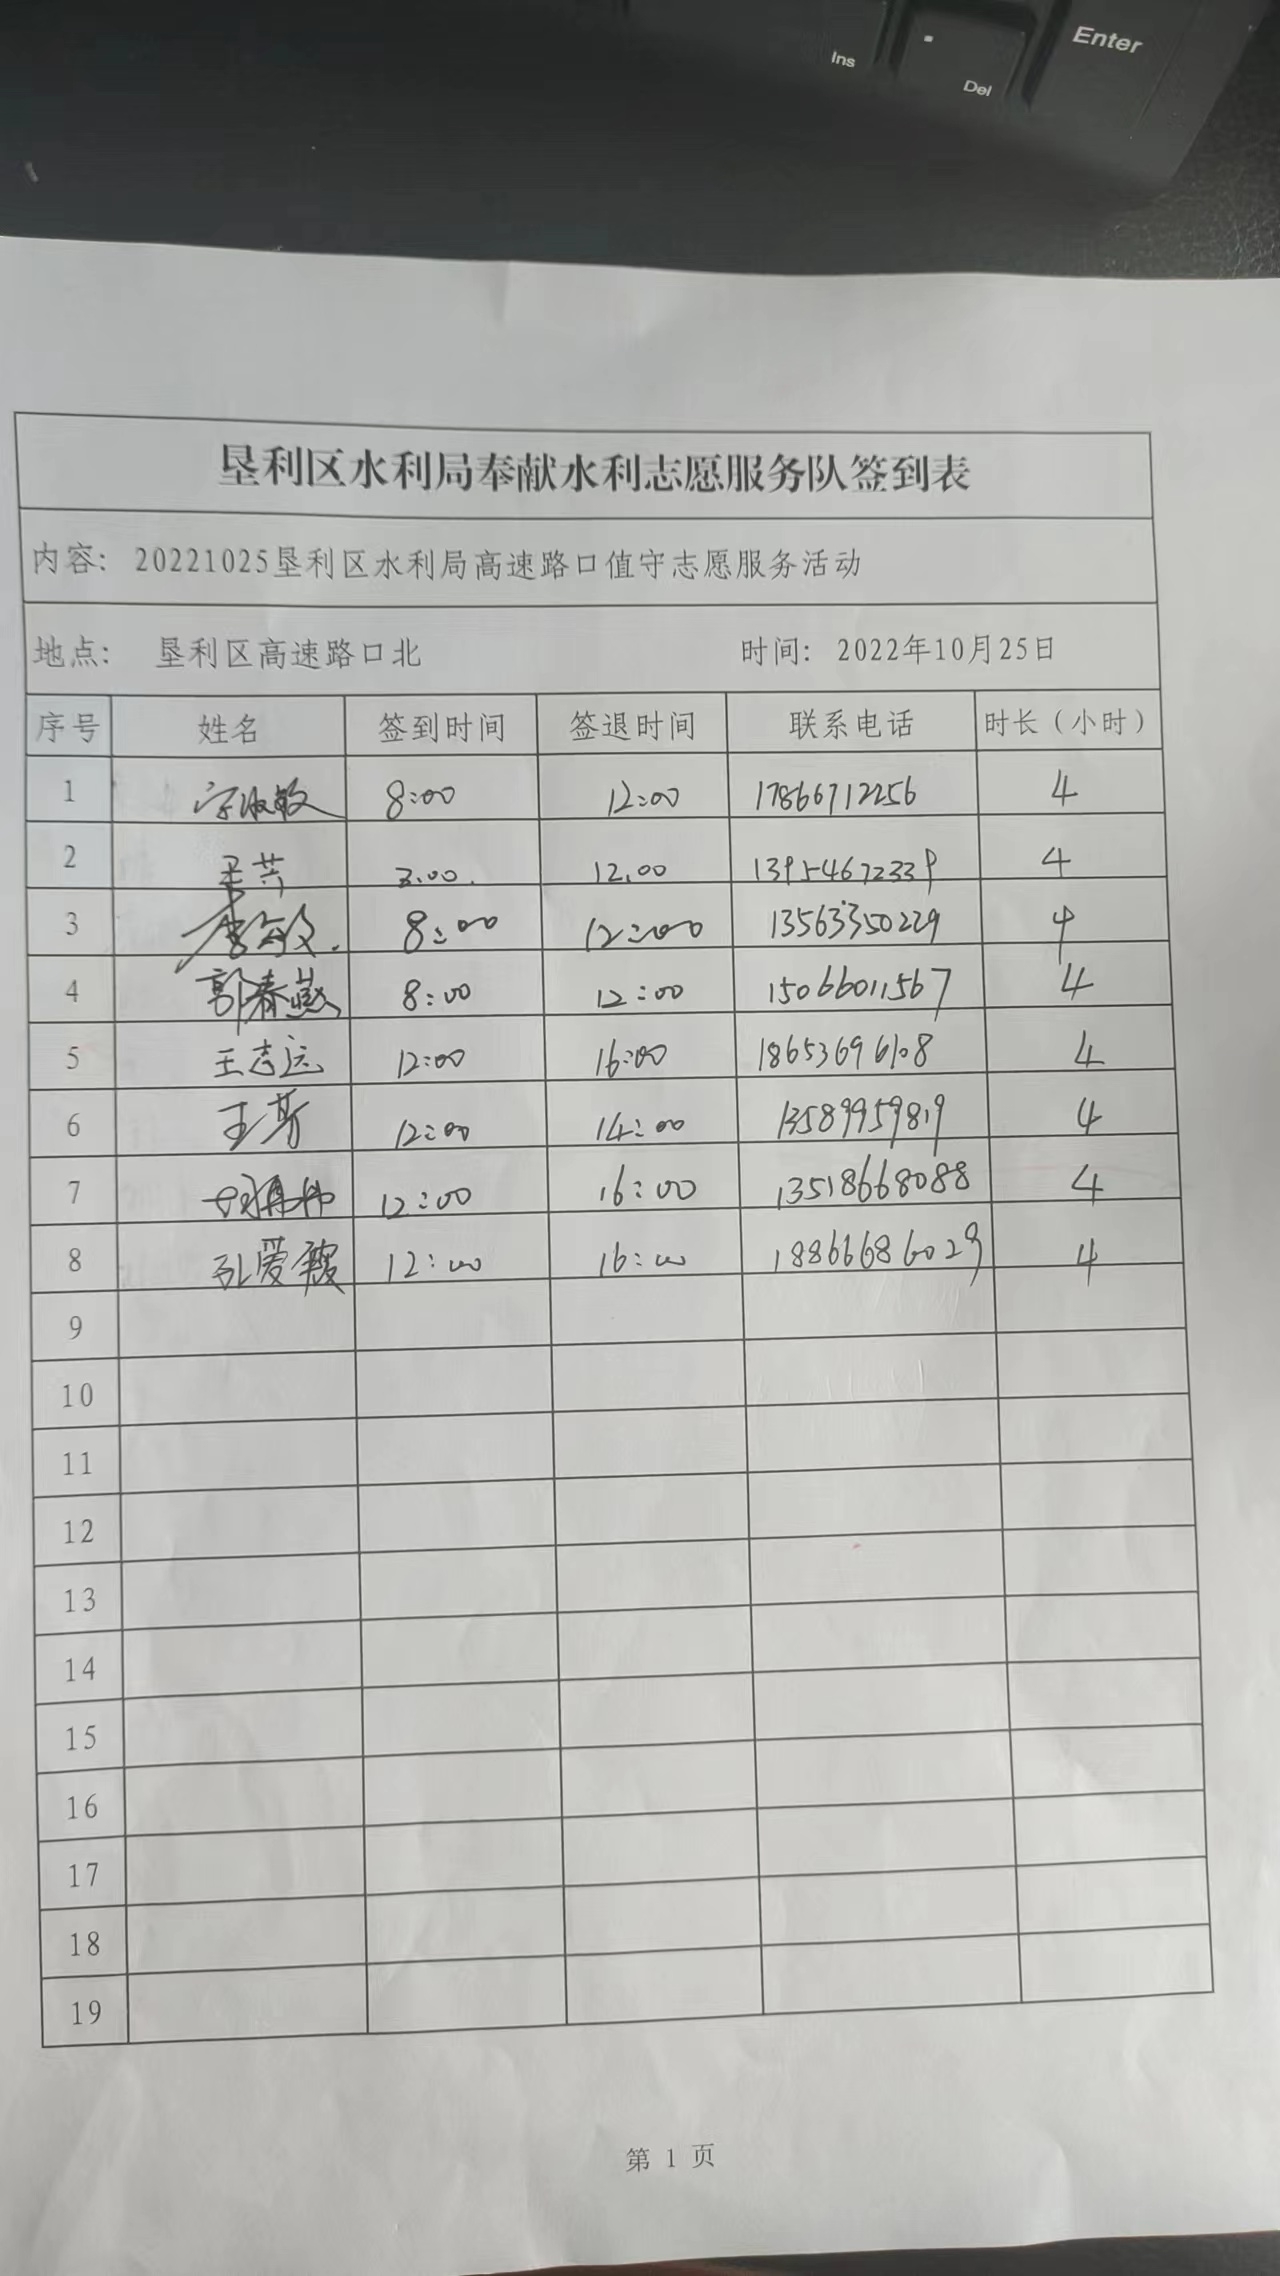 Ins
Del
Enter
垦利区水利局奉献水利志愿服务队签到表
内容: 20221025垦利区水利局高速路口值守志愿服务活动
地点: 垦利区高速路口北 时间: 2022年10月25日
序号 姓名 签到时间 签退时间 联系电话 时长（小时）
1 8:00 12:00 17866712256 4
2 12.00 13954672339 4
3 8:00 12:00 13563350229 4
4 郭春燕 8:00 12:00 15066011567 4
5 王志远 12:00 16:00 18653696108 4
6 12:00 14:00 13589959819 4
7 12:00 16:00 13518668088 4
8 孔爱 12:00 16:00 18866686029 4
9
10
11
12
13
14
15
16
17
18
19
第 1 页